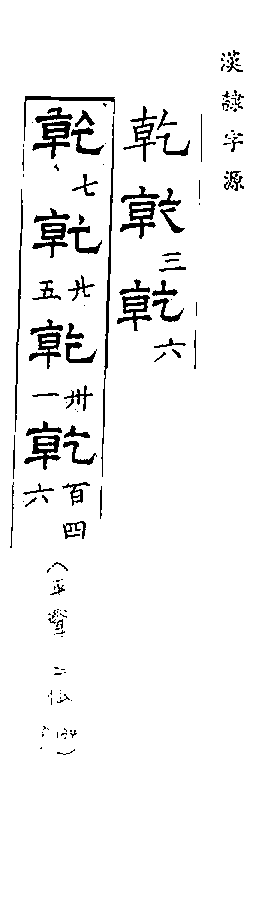 漢隸字源
乾乾三乾六
乾七乾廿五乾卅一乾百四六